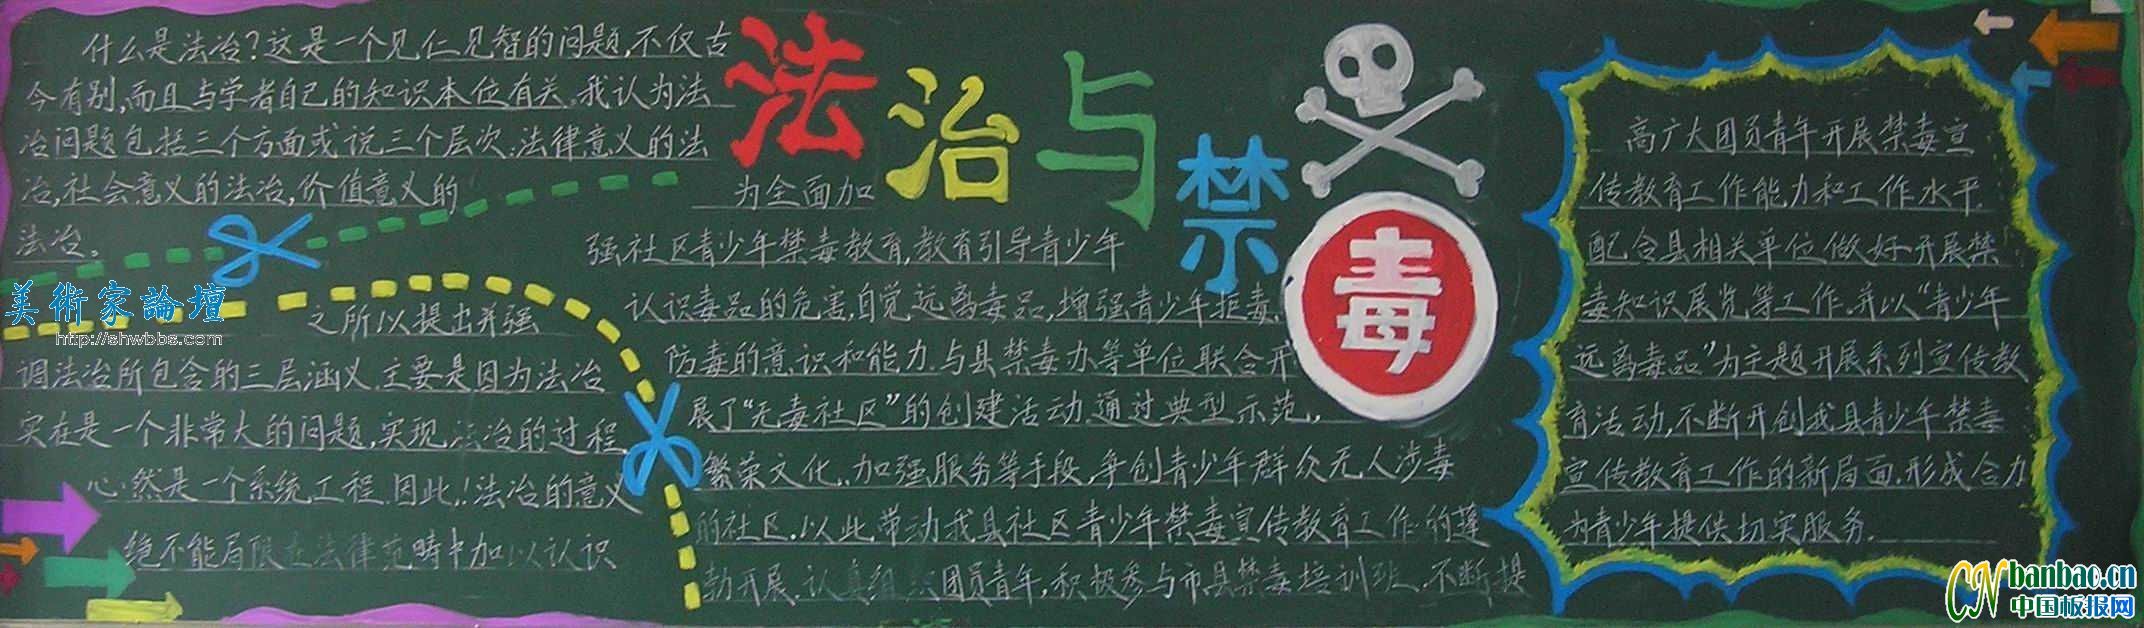 法治与禁毒
什么是法治?这是一个见仁见智的问题,不仅古
今有别,而且与学者自己的知识本位有关。我认为法
治问题包括三个方面或说三个层次:法律意义的法
治,社会意义的法治,价值意义的
法治。
之所以提出并强
调法治所包含的三层涵义.主要是因为法治
实在是一个非常大的问题,实现法治的过程
必然是一个系统工程.因此,!法治的意义
绝不能局限在法律范畴中加以认识
为全面加
强社区青少年禁毒教育,教育引导青少年
认识毒品的危害,自觉远离毒品,增强青少年拒毒、
防毒的意识和能力.与县禁毒办等单位联合开
展了“无毒社区”的创建活动.通过典型示范,
繁荣文化、加强服务等手段,争创青少年群众无人涉毒
的社区.以此带动我县社区青少年禁毒宣传教育工作的蓬
勃开展.认真组织团员青年,积极参与市县禁毒培训班.不断提
高广大团员青年开展禁毒宣
传教育工作能力和工作水平.
配合县相关单位做好开展禁
毒知识展览等工作.并以“青少年
远离毒品”为主题开展系列宣传教
育活动,不断开创我县青少年禁毒
宣传教育工作的新局面.形成合力
为青少年提供切实服务.
美術家論壇
http://shwbbs.com
CN banbao.cn
中国板报网